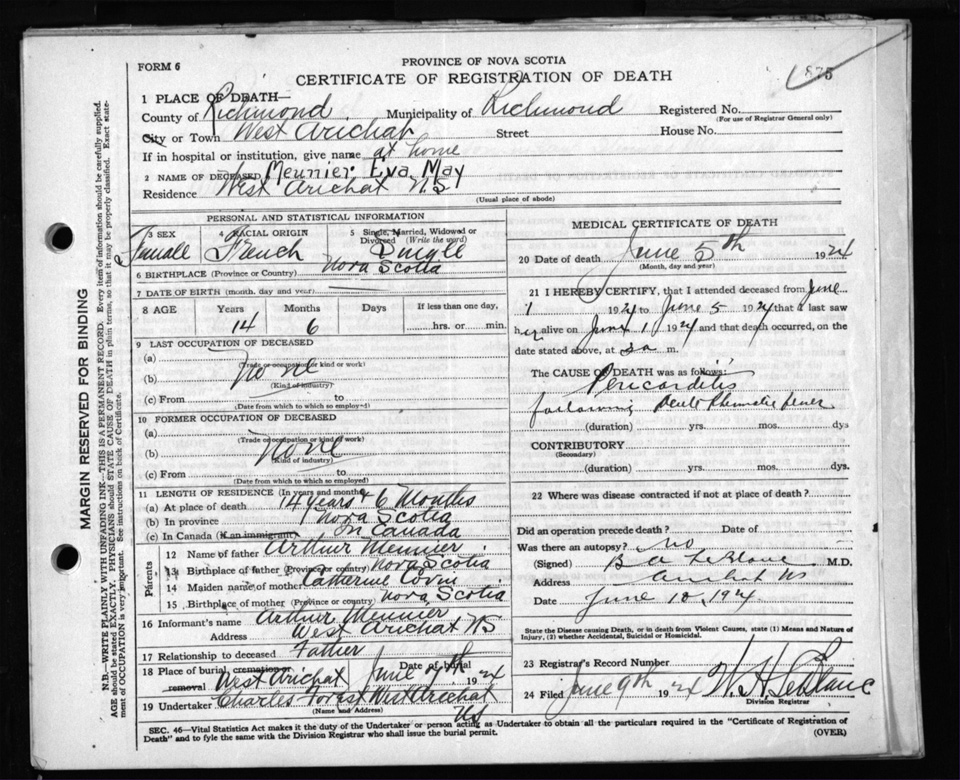 FORM 6
PROVINCE OF NOVA SCOTIA
CERTIFICATE OF REGISTRATION OF DEATH
875
1 PLACE OF DEATH—
County of Richmond Municipality of Richmond Registered No.
(For use of Registrar General only)
City or Town West Arichat Street House No.
If in hospital or institution, give name at home
2 NAME OF DECEASED Meunier Eva May
Residence West Arichat N.S
(Usual place of abode)
PERSONAL AND STATISTICAL INFORMATION
3 SEX 4 RACIAL ORIGIN 5 Single, Married, Widowed or Divorced (Write the word)
Female French Single
6 BIRTHPLACE (Province or Country) Nova Scotia
7 DATE OF BIRTH (month, day and year)
8 AGE Years Months Days If less than one day,
14 6 hrs. or min.
9 LAST OCCUPATION OF DECEASED
(a)
(Trade or occupation or kind or work)
(b) None
(Kind of industry)
(c) From to
(Date from which to which so employed)
10 FORMER OCCUPATION OF DECEASED
(a)
(Trade or occupation or kind of work)
(b) None
(Kind of industry)
(c) From to
(Date from which to which so employed)
11 LENGTH OF RESIDENCE (In years and months)
(a) At place of death 14 years + 6 Months
(b) In province Nova Scotia
(c) In Canada (If an immigrant) In Canada
Parents
12 Name of father Arthur Meunier
13 Birthplace of father (Province or country) Nova Scotia
14 Maiden name of mother Catherine
15 Birthplace of mother (Province or country) Nova Scotia
16 Informant's name Arthur Meunier
Address West Arichat NS
17 Relationship to deceased Father
18 Place of burial, cremation or removal West Arichat Date of burial June 7th 1924
19 Undertaker Charles West Arichat
(Name and Address) NS
MEDICAL CERTIFICATE OF DEATH
20 Date of death June 5th 1924
(Month, day and year)
21 I HEREBY CERTIFY, that I attended deceased from June
1 1924 to June 5 1924 that I last saw
her alive on June 1 1924 and that death occurred, on the
date stated above, at m.
The CAUSE OF DEATH was as follows:
Pericarditis
following Acute Rheumatic fever
(duration) yrs. mos. dys
CONTRIBUTORY
(Secondary)
(duration) yrs. mos. dys.
22 Where was disease contracted if not at place of death?
Did an operation precede death? Date of
Was there an autopsy? No
(Signed) B A LeBlanc M.D.
Address Arichat NS
Date June 10, 1924
State the Disease causing Death, or in death from Violent Causes, state (1) Means and Nature of
Injury, (2) whether Accidental, Suicidal or Homicidal.
23 Registrar's Record Number
24 Filed June 9th 1924 W. H. LeBlanc
Division Registrar
SEC. 46—Vital Statistics Act makes it the duty of the Undertaker or person acting as Undertaker to obtain all the particulars required in the "Certificate of Registration of
Death" and to fyle the same with the Division Registrar who shall issue the burial permit. (OVER)
MARGIN RESERVED FOR BINDING
N.B.—WRITE PLAINLY WITH UNFADING INK—THIS IS A PERMANENT RECORD. Every item of information should be carefully supplied.
AGE should be stated EXACTLY. PHYSICIANS should STATE CAUSE OF DEATH in plain terms, so that it may be properly classified. Exact state-
ment of OCCUPATION is very important. See instructions on book of Certificate.